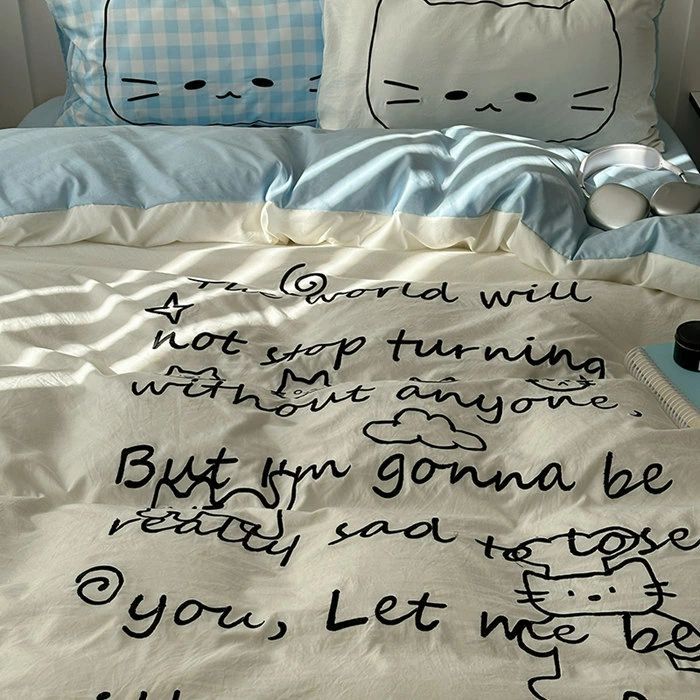 The world will
not stop turning
without anyone,
But I'm gonna be
really sad to lose
you, Let me be